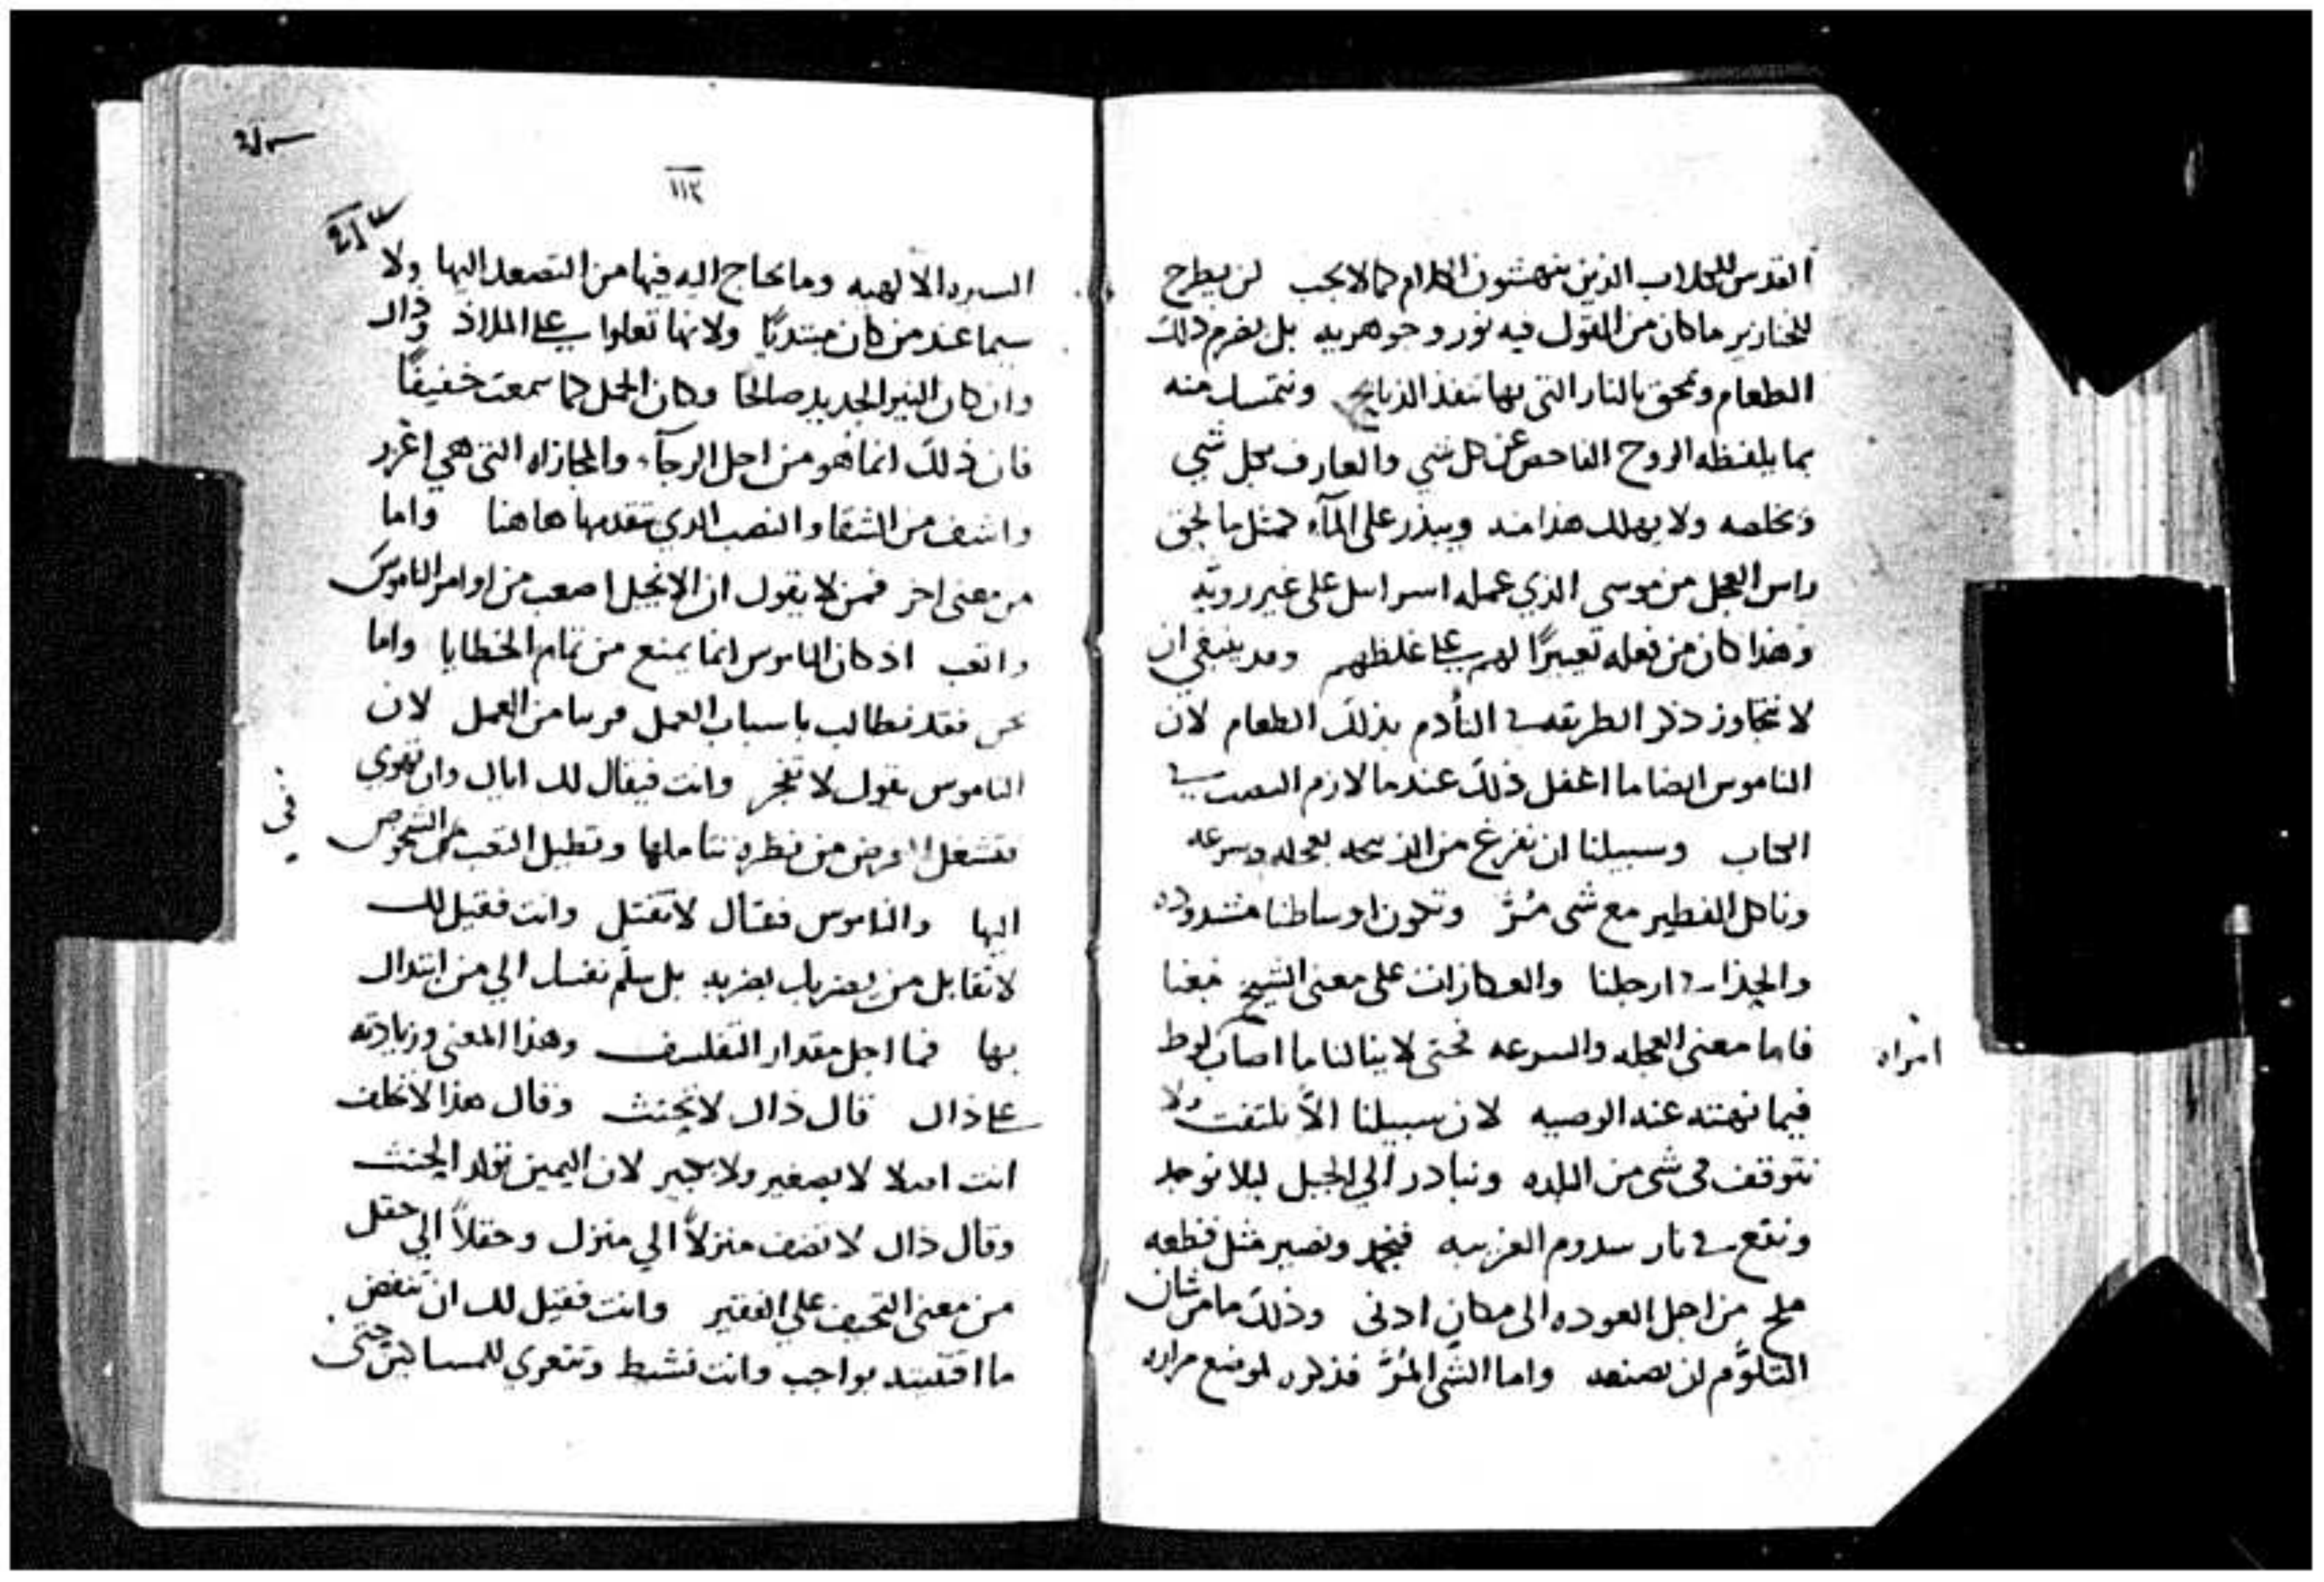 القدس للكلاب الذين ينهشون الكلام كما لا يجب لن يطرح
للخنازير ما كان من القول فيه نور وجوهريه بل يضرم ذلك
الطعام ويحق بالنار التي بها تنفذ الذبايح ونتمسك منه
بما يلفظه الروح الفاحص عن كل شي والعارف بكل شي
ونخلصه ولا يهلك هذا منه ويبذر على المآء كمثل ما لحق
راس العجل من موسى الذي عمله اسراييل على غير رويّه
وهذا كان من فعله تعييرًا لهم على غلظهم وقد ينبغي ان
لا نتجاوز ذكر الطريقه في التأدم بذلك الطعام لان
الناموس ايضا ما اغفل ذلك عندما لازم في
الكتاب وسبيلنا ان نفرغ من الذبيحه بعجله وسرعه
وناكل الفطير مع شي مُرّ وتكون اوساطنا مشدوده
والحذا في ارجلنا والعكازات على معنى الشيخ معنا
فاما معنى العجله والسرعه فحتى لا ينالنا ما اصاب لوط
امراه
فيما نهته عنه الوصيه لان سبيلنا الاّ نلتفت ولا
نتوقف في شي من البلده ونبادر الي الجبل ليلا نوخذ
ونقع في نار سدوم الغريبه فنجمد ونصير مثل قطعه
ملح من اجل العوده الى مكان ادنى وذلك ما من شان
التلوُّم لن يصنعه واما الشي المُرّ فذكره لموضع مراره
١١٢
السيره الالهيه وما يحتاج اليه فيها من التصعد اليها ولا
سيما عند من كان مبتديًا ولانها تعلوا على الملاذ وذاك
وان كان النير الجديد صالحًا وكان الحمل كما سمعت خفيفًا
فان ذلك انما هو من اجل الرجآء والمجازاه التي هي اغزر
واشف من الشقا والنصب الذي تقدمها هاهنا واما
من معنى اخر فمن لا يقول ان الانجيل اصعب من اوامر الناموس
واتعب اذ كان الناموس انما يمنع من تمام الخطايا واما
نحن فقد نطالب باسباب العمل قريبا من العمل لان
الناموس يقول لا تفجر وانت فيقال لك اياك وان تهوي
فتشعل المرض من نظره تتاملها وتطيل التعب من الشخوص
اليها والناموس فقال لا تقتل وانت فقيل لك
لا تقابل من يضربك بضربه بل سلّم نفسك الي من ابتداك
بها فما اجل مقدار التفلسف وهذا المعنى وزيادته
على ذاك قال ذاك لا تحنث وقال هذا لا تحلف
انت اصلا لا بصغير ولا بكبير لان اليمين تولد الحنث
وقال ذاك لا تضف منزلاً الي منزل وحقلاً الي حقل
من معنى التحيف على الفقير وانت فقيل لك ان تنفض
ما اقتنيته بواجب وانت نشيط وتتعري للمساكين حتى